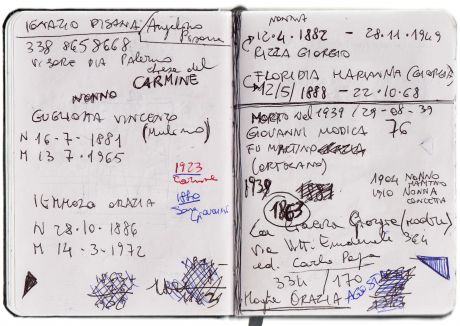 IGNAZIO PISANA / Angelino
Pisana
338 8658668
VISORE VIA Palermo
chiesa del
CARMINE
NONNO
GUGLIOTTA VINCENZO
(Mulino)
N 16-7-1881
M 13-7-1965
1923
Carmine
1860
San Giovanni
ORAZIA
N 28.10.1886
M 14-3-1972
NONNA
12.4.1882 - 28-11-1949
RIZZA GIORGIO
FLORIDIA MARIANNA (GIORGIA)
12/5/1888 - 22-10-68
MORTO nel 1939 / 29-08-39
GIOVANNI MODICA 76
FU MARTINO
(ORTOLANO)
1939
1904 NONNO
1910 NONNA
CONCETTA
1863
La Giorgio (Modica)
via Vitt. Emanuele 364
ed. Carlo Papa
334 / 170
Moglie ORAZIA AGOSTA